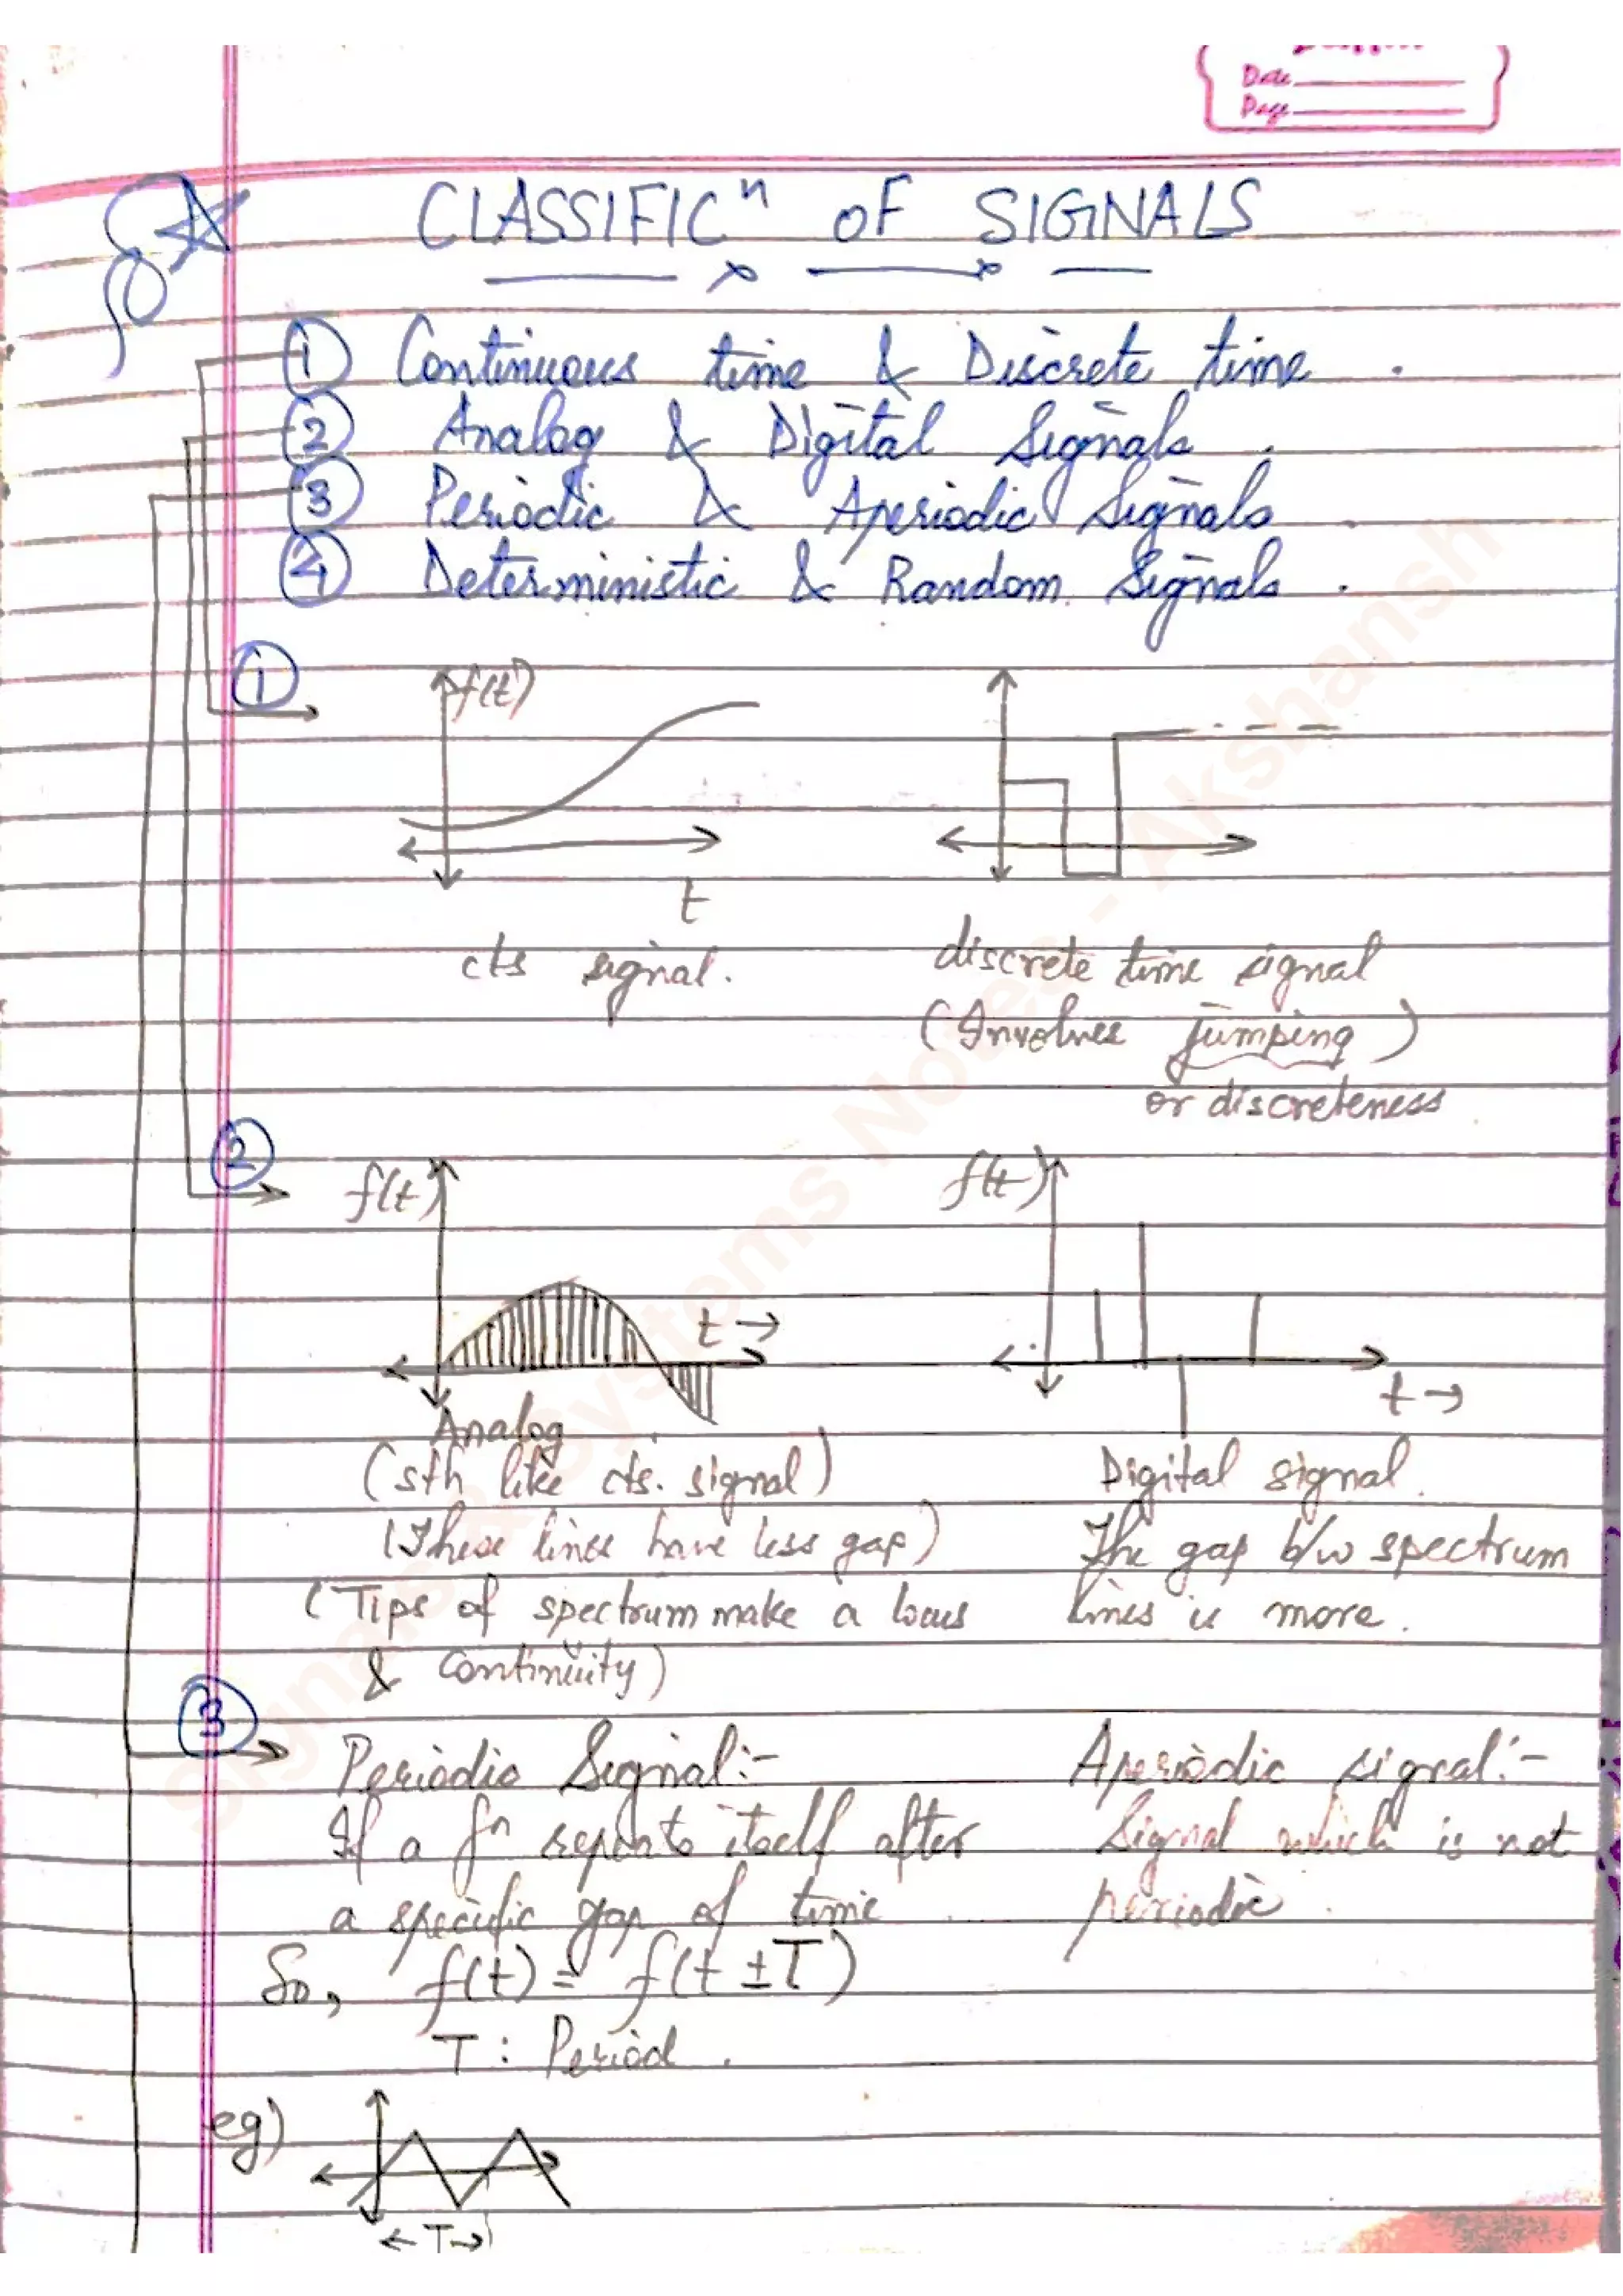 Date
Page
CLASSIFICⁿ OF SIGNALS
① Continuous time & Discrete time .
② Analog & Digital Signals .
③ Periodic & Aperiodic Signals
④ Deterministic & Random Signals .
①
f(t)
t
cts signal.
discrete time signal
(Involves jumping)
or discreteness
②
f(t)
f(t)
t →
t →
Analog
(sth like cts. signal)
(These lines have less gap)
(Tips of spectrum make a locus
& continuity)
Digital signal.
The gap b/w spectrum
lines is more.
③
Periodic Signal:-
If a fⁿ repeats itself after
a specific gap of time
So, f(t) = f(t ± T)
T : Period .
Aperiodic signal:-
Signal which is not
periodic .
eg)
← T →
Signals & Systems Notes - Akshansh